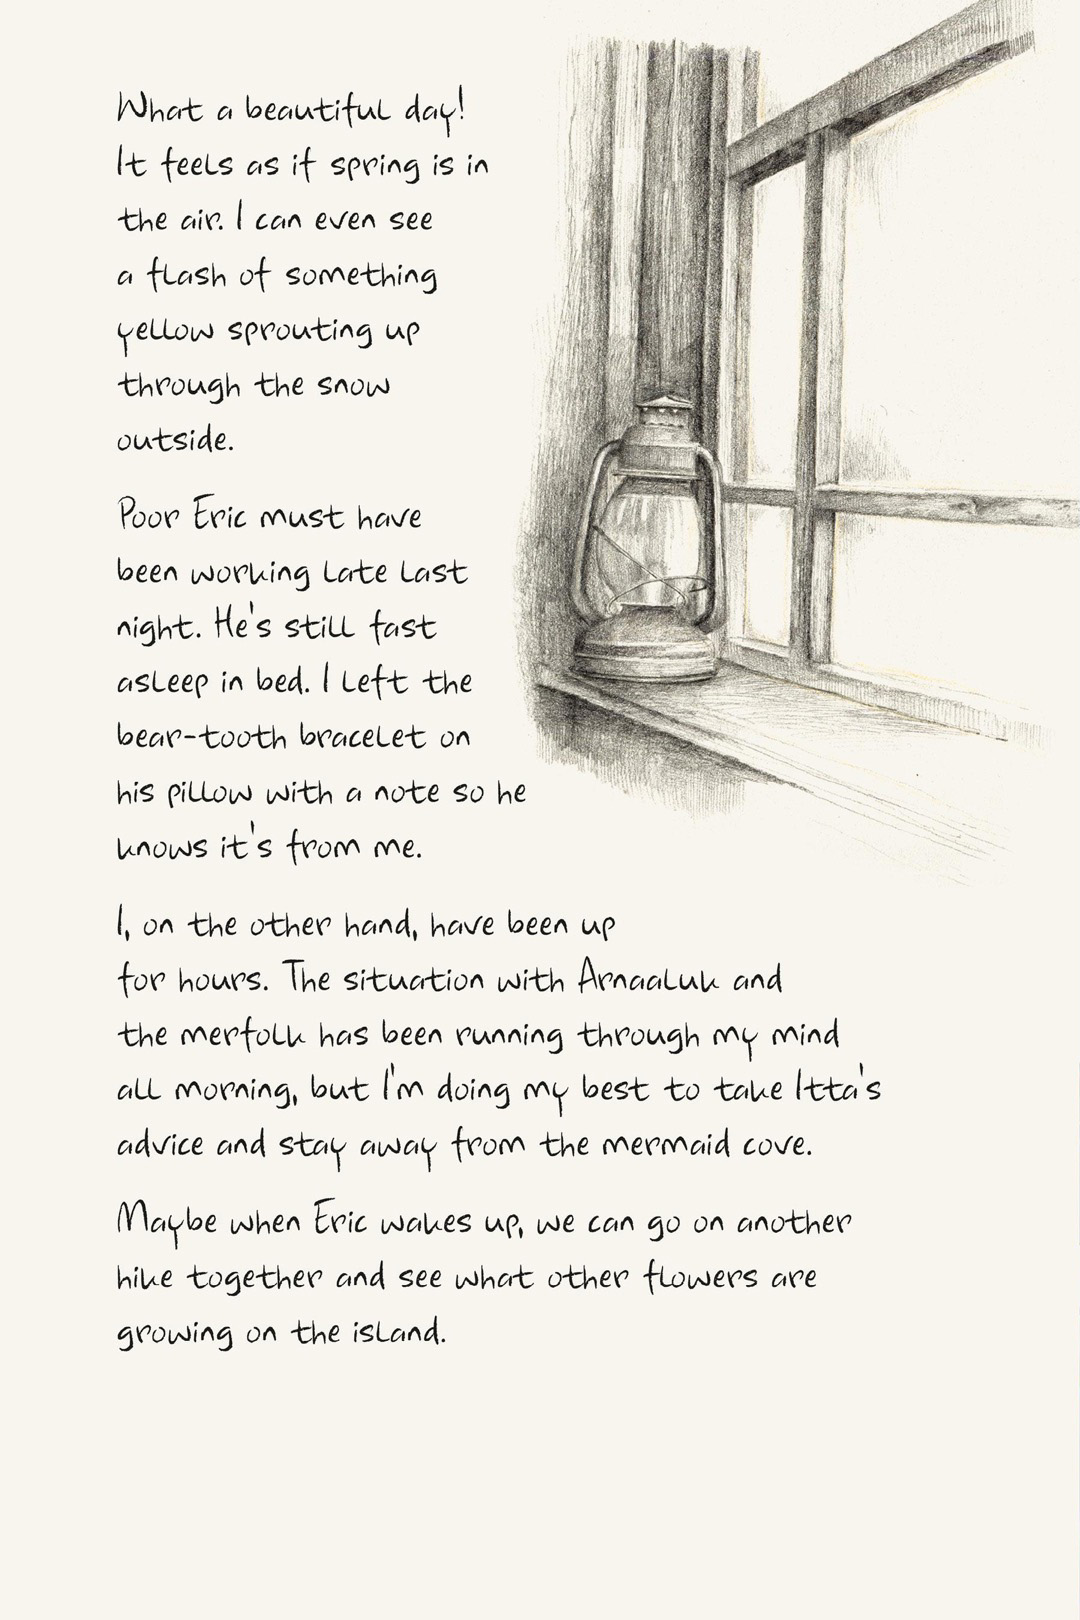 What a beautiful day!
It feels as if spring is in
the air. I can even see
a flash of something
yellow sprouting up
through the snow
outside.
Poor Eric must have
been working late last
night. He's still fast
asleep in bed. I left the
bear-tooth bracelet on
his pillow with a note so he
knows it's from me.
I, on the other hand, have been up
for hours. The situation with Arnaaluk and
the merfolk has been running through my mind
all morning, but I'm doing my best to take Itta's
advice and stay away from the mermaid cove.
Maybe when Eric wakes up, we can go on another
hike together and see what other flowers are
growing on the island.